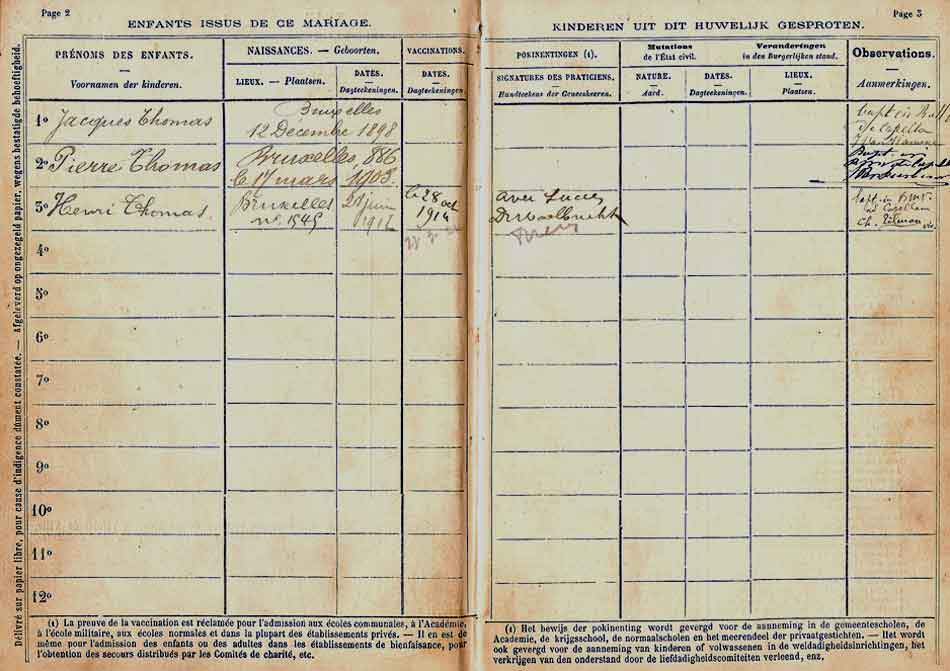 Page 2
ENFANTS ISSUS DE CE MARIAGE.
PRÉNOMS DES ENFANTS.
Voornamen der kinderen.
NAISSANCES. — Geboorten.
LIEUX. — Plaatsen.
DATES.
Dagteekeningen.
VACCINATIONS.
DATES.
Dagteekeningen
1º Jacques Thomas
Bruxelles
12 Décembre 1898
2º Pierre Thomas
Bruxelles, 886
le 17 mars 1903.
3º Henri Thomas.
Bruxelles
nº 1545
juin
le 28 oct
1914
4º
5º
6º
7º
8º
9º
10º
11º
12º
(1) La preuve de la vaccination est réclamée pour l'admission aux écoles communales, à l'Académie,
à l'école militaire, aux écoles normales et dans la plupart des établissements privés. — Il en est de
même pour l'admission des enfants ou des adultes dans les établissements de bienfaisance, pour
l'obtention des secours distribués par les Comités de charité, etc.
Délivré sur papier libre, pour cause d'indigence dûment constatée. — Afgeleverd op ongezegeld papier, wegens bestatigde behoeftigheid.
Page 3
KINDEREN UIT DIT HUWELIJK GESPROTEN.
POKINENTINGEN (1).
SIGNATURES DES PRATICIENS.
Handteekens der Geneesheeren.
Mutations
de l'État civil.
Veranderingen
in den Burgerlijken stand.
NATURE.
Aard.
DATES.
Dagteekeningen.
LIEUX.
Plaatsen.
Observations.
Aanmerkingen.
avec succès
(1) Het bewijs der pokinenting wordt gevergd voor de aanneming in de gemeentescholen, de
Academie, de krijgsschool, de normaalscholen en het meerendeel der privaatgestichten. — Het wordt
ook gevergd voor de aanneming van kinderen of volwassenen in de weldadigheidsinrichtingen, het
verkrijgen van den onderstand door de liefdadigheidscomiteiten verleend, enz.